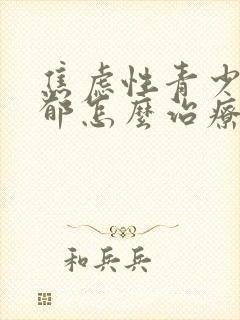 焦虑性青少
都怎麼治療
和兵兵